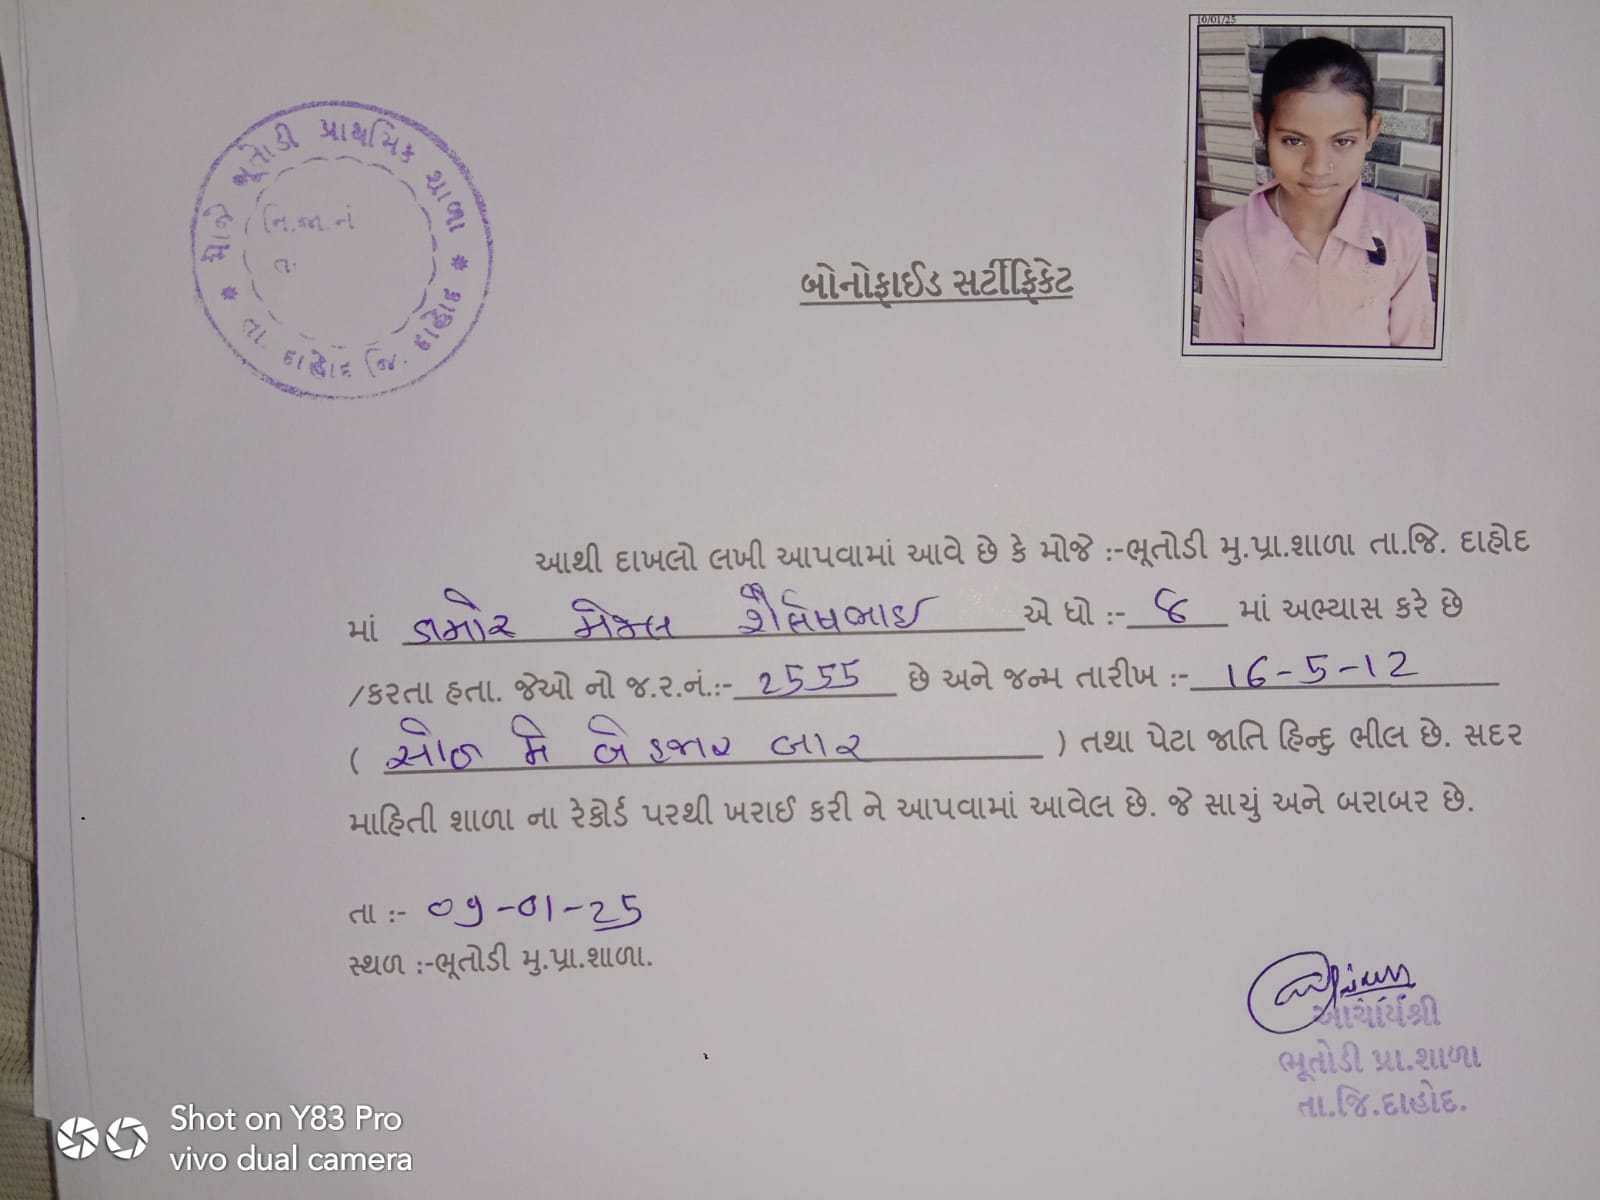 10/01/25
મોજે ભૂતોડી પ્રાથમિક શાળા * તા. દાહોદ જિ. દાહોદ *
નિ.જા.નં
તા.
બોનોફાઈડ સર્ટીફિકેટ
આથી દાખલો લખી આપવામાં આવે છે કે મોજે :-ભૂતોડી મુ.પ્રા.શાળા તા.જિ. દાહોદ
માં ડામોર શૈલેષભાઈ એ ધો :- ૮ માં અભ્યાસ કરે છે
/કરતા હતા. જેઓ નો જ.ર.નં.:- 2555 છે અને જન્મ તારીખ :- 16-5-12
( સોળ મે બે હજાર બાર ) તથા પેટા જાતિ હિન્દુ ભીલ છે. સદર
માહિતી શાળા ના રેકોર્ડ પરથી ખરાઈ કરી ને આપવામાં આવેલ છે. જે સાચું અને બરાબર છે.
તા :- 09-01-25
સ્થળ :-ભૂતોડી મુ.પ્રા.શાળા.
આચાર્યશ્રી
ભૂતોડી પ્રા.શાળા
તા.જિ.દાહોદ.
Shot on Y83 Pro
vivo dual camera